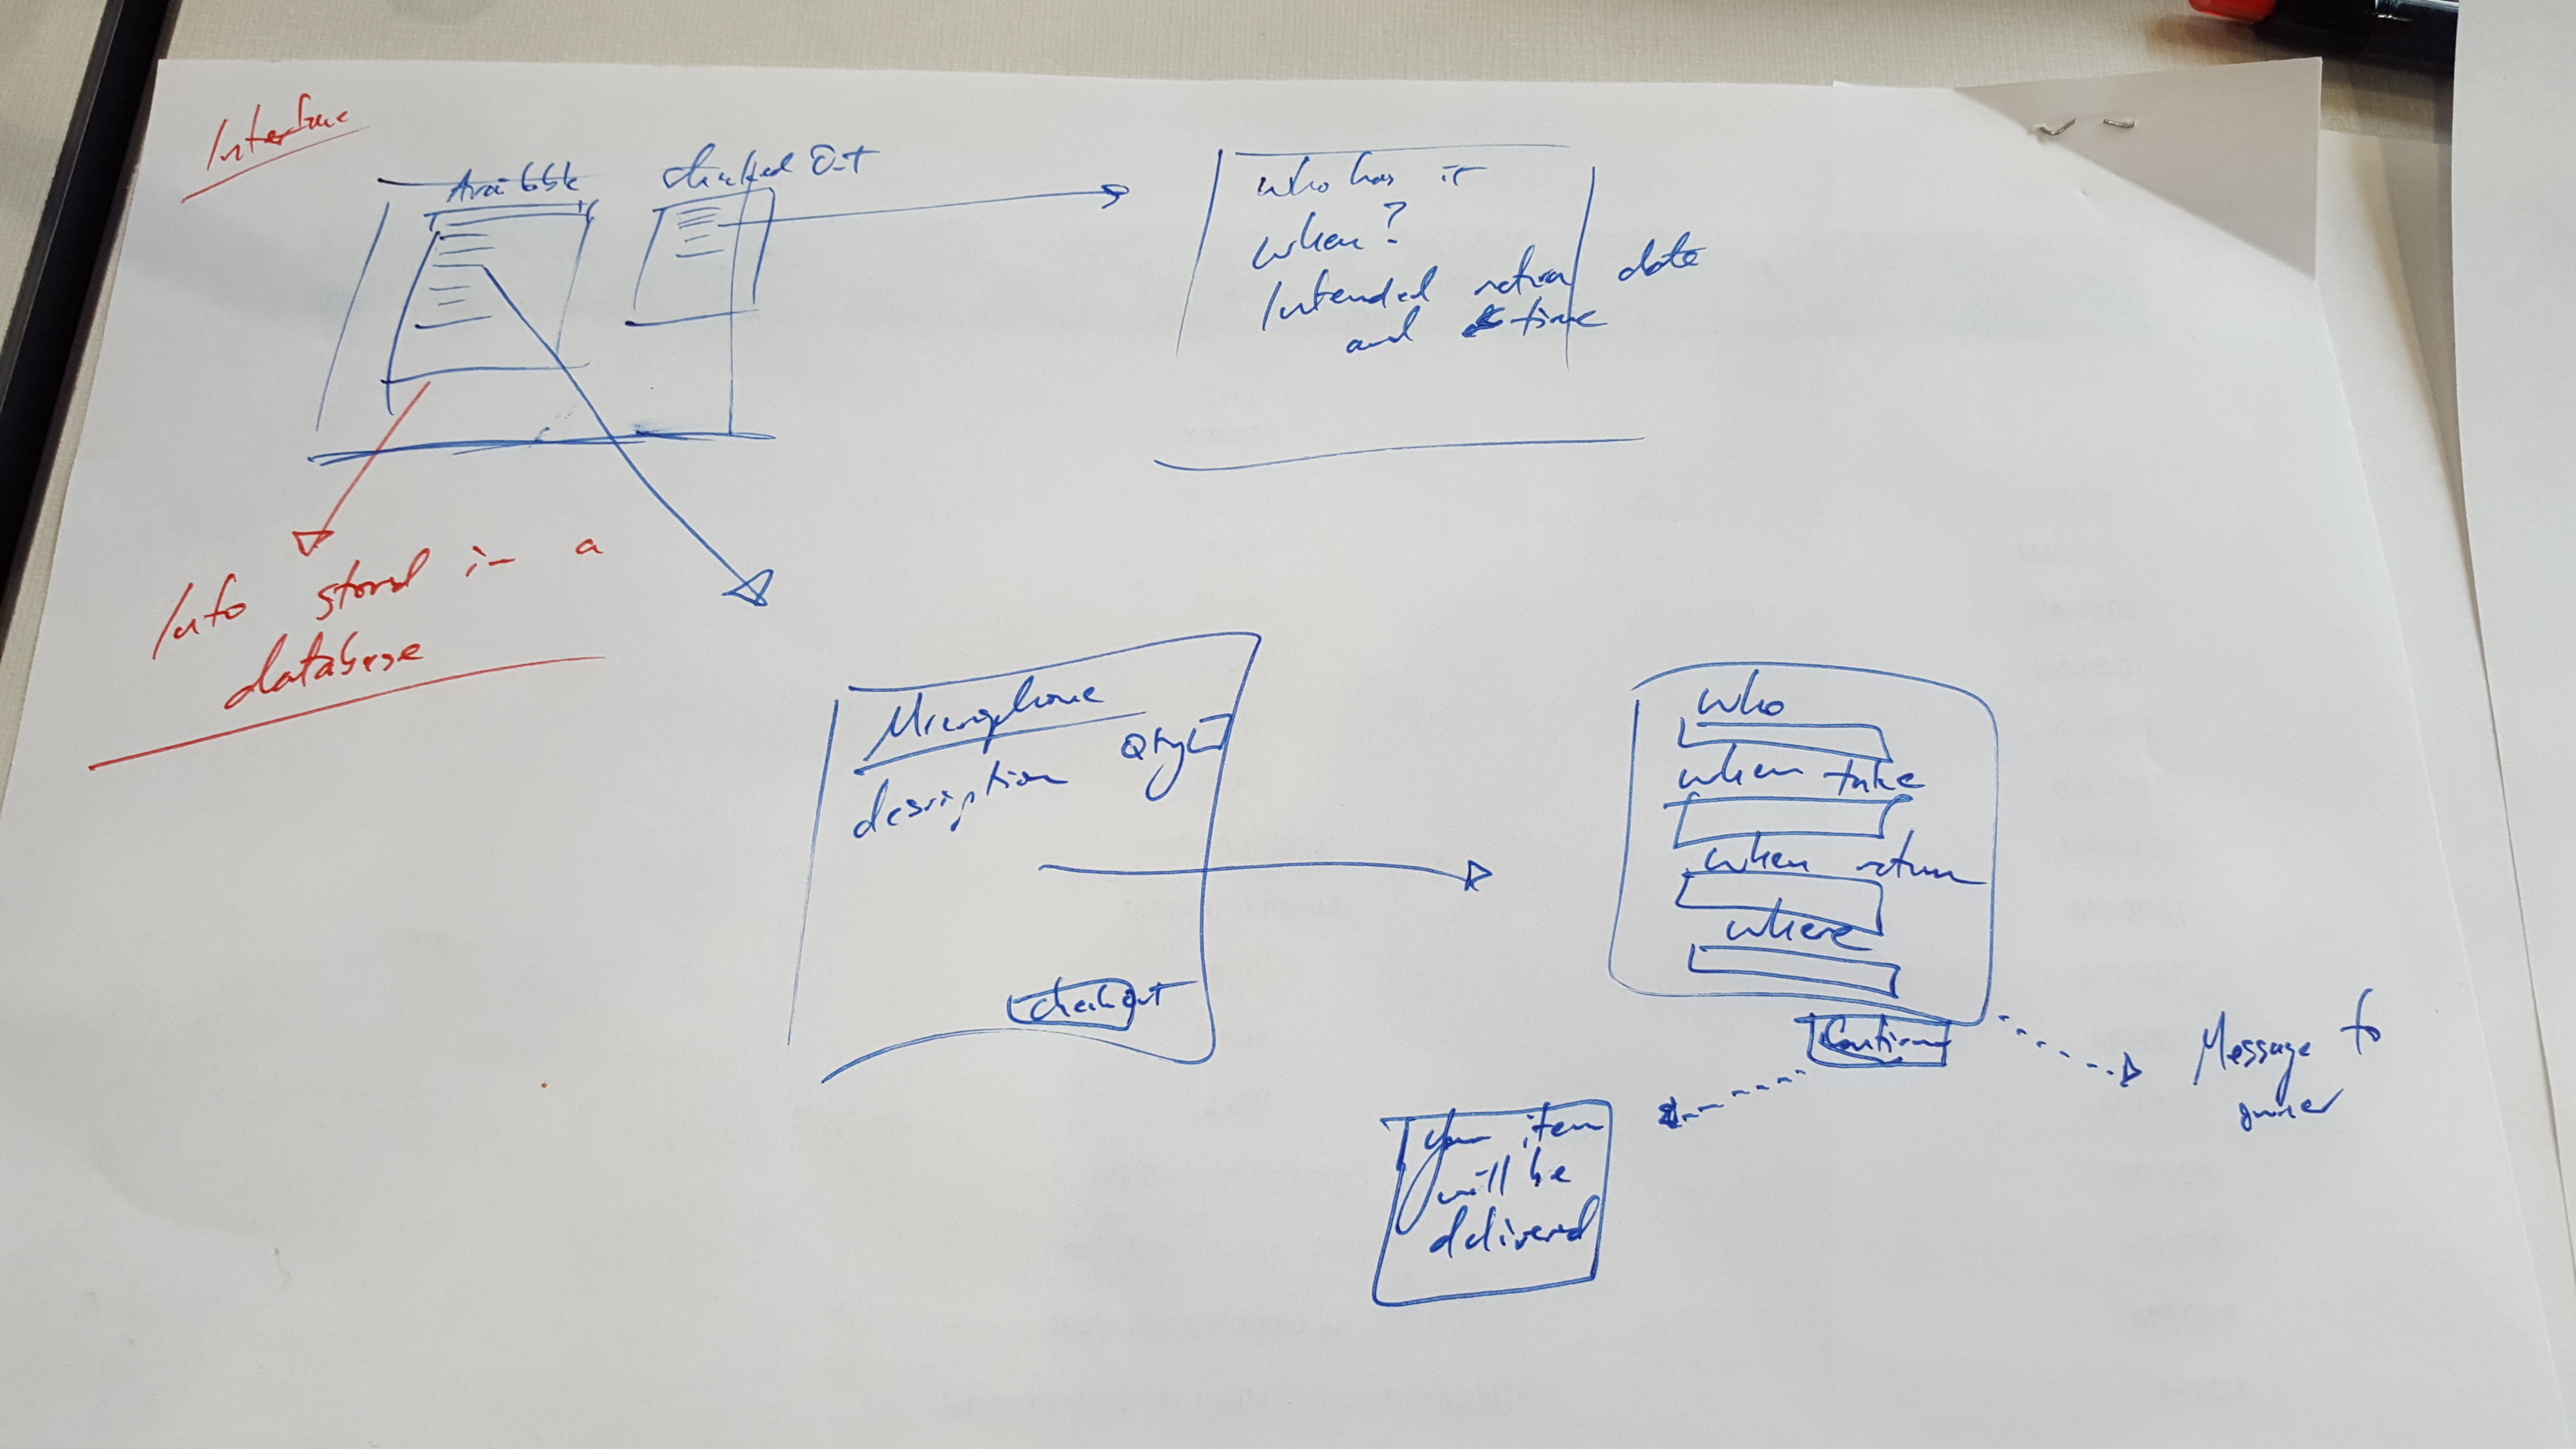 Interface
Available
Checked Out
who has it
when?
Intended return date
and time
Info stored in a
database
Microphone
Qty
desription
check out
who
when take
when return
where
Confirm
Message to
owner
your item
will be
delivered